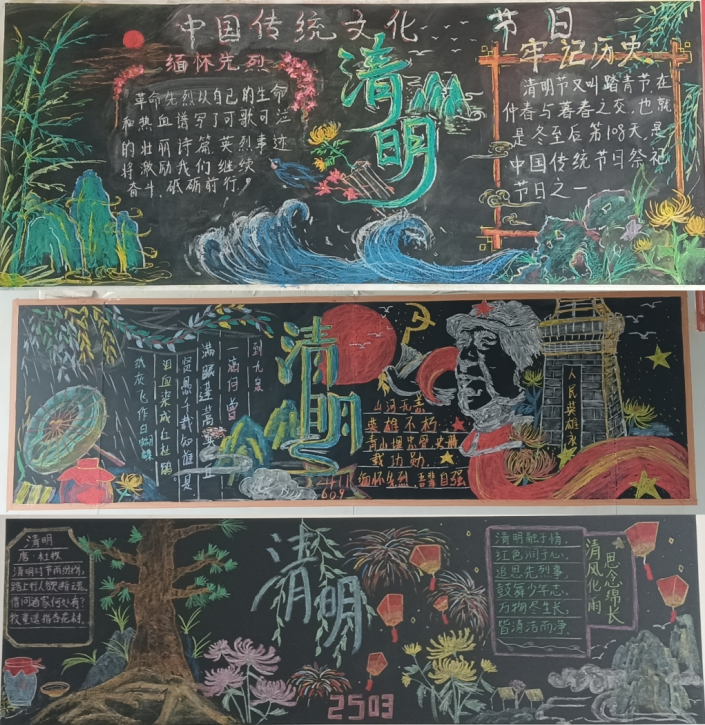 中国传统文化 节日
缅怀先烈
革命先烈以自己的生命
和热血谱写了可歌可泣
的壮丽诗篇英烈事迹
将激励我们继续
奋斗,砥砺前行!
清明
牢记历史
清明节又叫踏青节在
仲春与暮春之交,也就
是冬至后第108天是
中国传统节日祭祀
节日之一
到九泉
一滴何曾
满眼蓬蒿共一丘
贤愚千载知谁是
泪血染成红杜鹃
纸灰飞作白蝴蝶
清明
山河无恙
英雄不朽
青山埋忠骨史册
载功勋
缅怀先烈,吾辈自强
人民英雄永
609
清明
唐·杜牧
清明时节雨纷纷,
路上行人欲断魂,
借问酒家何处有?
牧童遥指杏花村.
清明
清明融于情,
红色润于心,
追思先烈事,
鼓舞少年志,
万物尽生长,
皆清洁而净.
思念绵长
清风化雨
2503